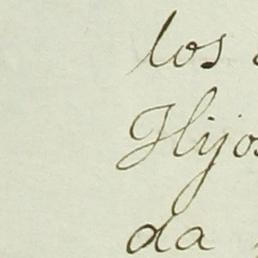 los
Hijos
da